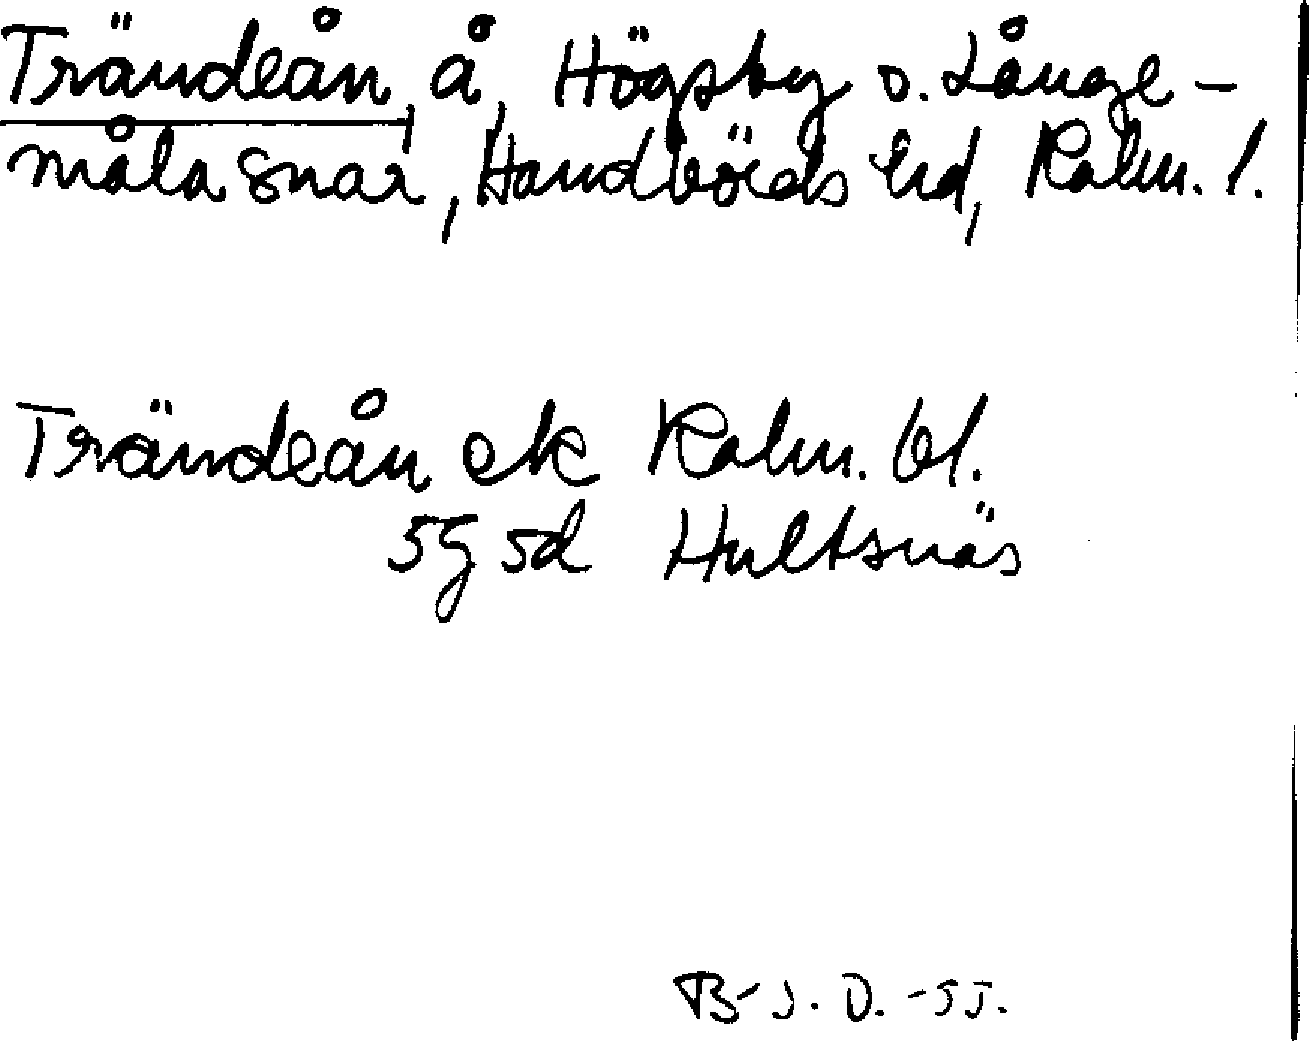 Trändeån, å, Högsby o. Långe-
måla snar, Handbörds hd, Kalm. l.
Trändeån ek Kalm. bl.
5g 5d Hultsnäs
B-J. D. -55.